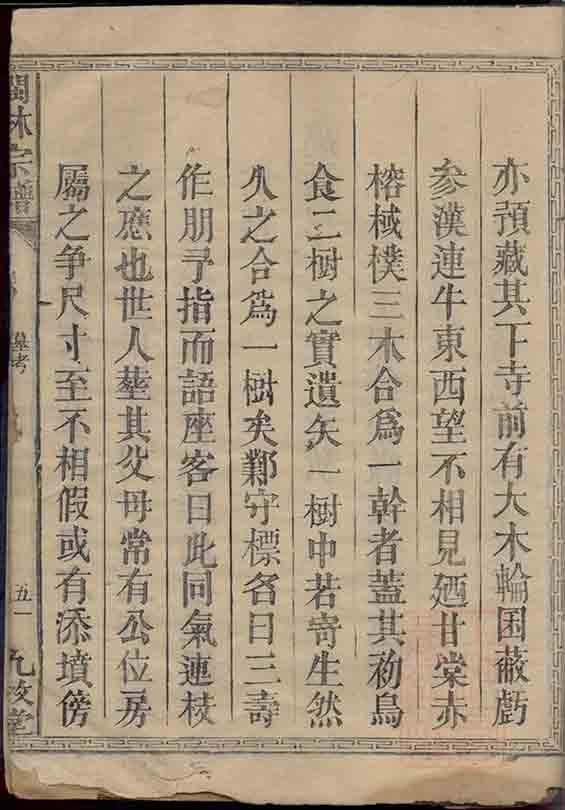 亦預藏其下寺前有大木輪囷蔽虧
參漢連牛東西望不相見廼甘棠赤
榕棫樸三木合為一幹者蓋其初鳥
食二樹之實遺矢一樹中若寄生然
久之合為一樹矣鄭守標名曰三壽
作朋予指而語座客曰此同氣連枝
之應也世人塟其父母常有公位房
屬之争尺寸至不相假或有添墳傍
閩林宗譜
墓考
五一
九牧堂